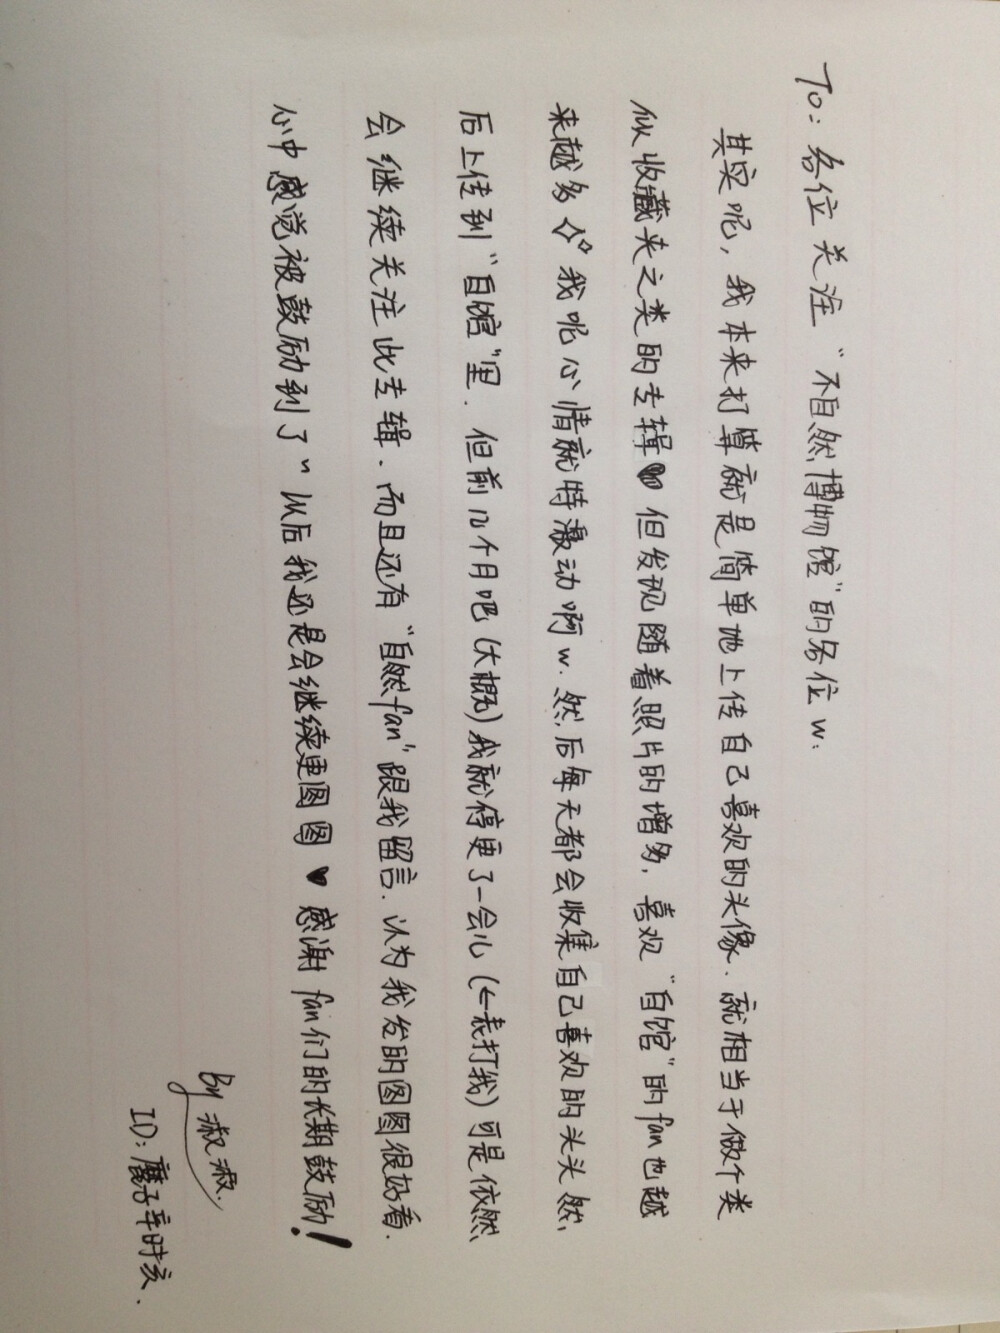 To: 各位关注“不自然博物馆”的各位w.
其实呢，我本来打算就是简单地上传自己喜欢的头像．就相当于做个类
似收藏夹之类的专辑♥但发现随着照片的增多，喜欢“自馆”的fan也越
来越多✧°我呢心情就特激动啊w．然后每天都会收集自己喜欢的头头然
后上传到“自馆”里．但前几个月吧(大概)我就停更了一会儿(←表打我)可是依然
会继续关注此专辑．而且还有“自然fan”跟我留言．认为我发的图图很好看．
心中感觉被鼓励到了~从后我还是会继续更图图♥感谢fan们的长期鼓励！
By 淑淑.
ID: 子辛时亥.